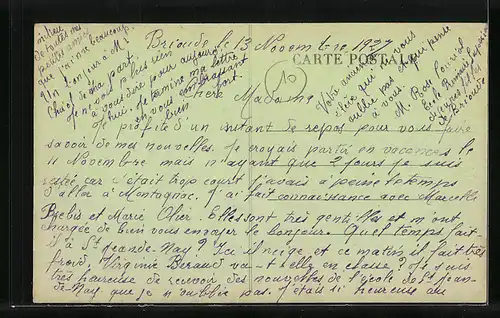 Brioude le 13 Novembre 1927
CARTE POSTALE
Chère Madame
Je profite d'un instant de repos pour vous faire
savoir de mes nouvelles. Je croyais partir en vacances le
11 Novembre mais n'ayant que 2 jours je suis
restée car c'était trop court j'avais à peine le temps
d'aller à Montagnac. J'ai fait connaissance avec Marcelle
et Marie Olier. Elles sont très gentilles et m'ont
chargée de bien vous envoyer le bonjour. Quel temps fait-
il à St Jean de Nay? Ici il neige et ce matin il fait très
froid. Virginie Beraud va-t-elle en classe? Je suis
très heureuse de recevoir des nouvelles de l'école de St Jean-
de-Nay que je n'oublie pas. J'étais si heureuse au
milieu
de toutes mes
petites amies
que j'aime beaucoup.
Un bonjour à Mr
de ma part.
Je ne vois plus rien
à vous dire pour aujourd'
hui. Je termine ma lettre
en vous embrassant
bien fort
Votre ancienne
élève qui vous
oublie pas et qui pense
à vous
M. Rose
Ecole Primaire Supérieure
de Brioude